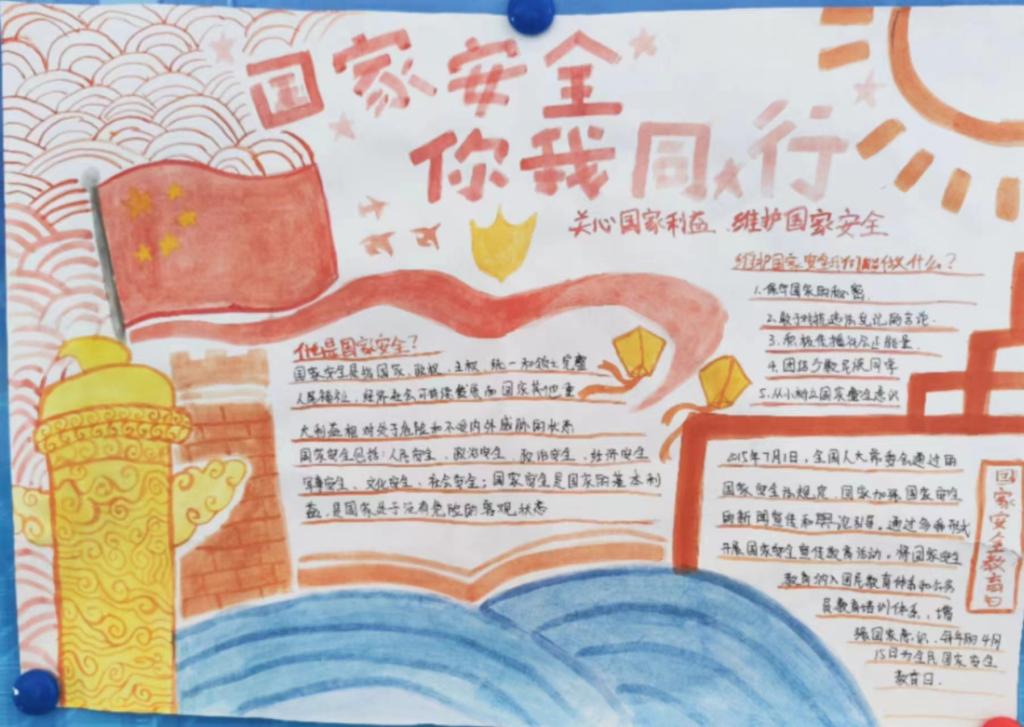 国家安全
你我同行
关心国家利益 维护国家安全
什么是国家安全?
国家安全是指国家、政权、主权、统一和领土完整
人民福祉、经济社会可持续发展和国家其他重
大利益相对处于危险和不受内外威胁的状态
国家安全包括:人民安全、政治安全、政治安全、经济安全
军事安全、文化安全、社会安全;国家安全是国家的基本利
益,是国家处于没有危险的客观状态
维护国家安全我们能做什么?
1.保守国家的秘密.
2.敢于对抗违法乱纪的言论.
3.积极传播社会正能量.
4.团结少数民族同学
5.从小树立国家安全意识
2015年7月1日,全国人大常委会通过的
国家安全法规定,国家加强国家安全
的新闻宣传和舆论引导,通过多种形式
开展国家安全宣传教育活动,将国家安全
教育纳入国民教育体系和公务
员教育培训体系,增
强国家意识.每年的4月
15日为全民国家安全
教育日.
国家安全教育日